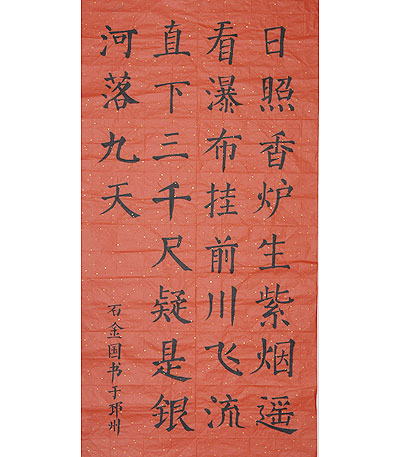 日照香炉生紫烟遥
看瀑布挂前川飞流
直下三千尺疑是银
河落九天
石金国书于邛州